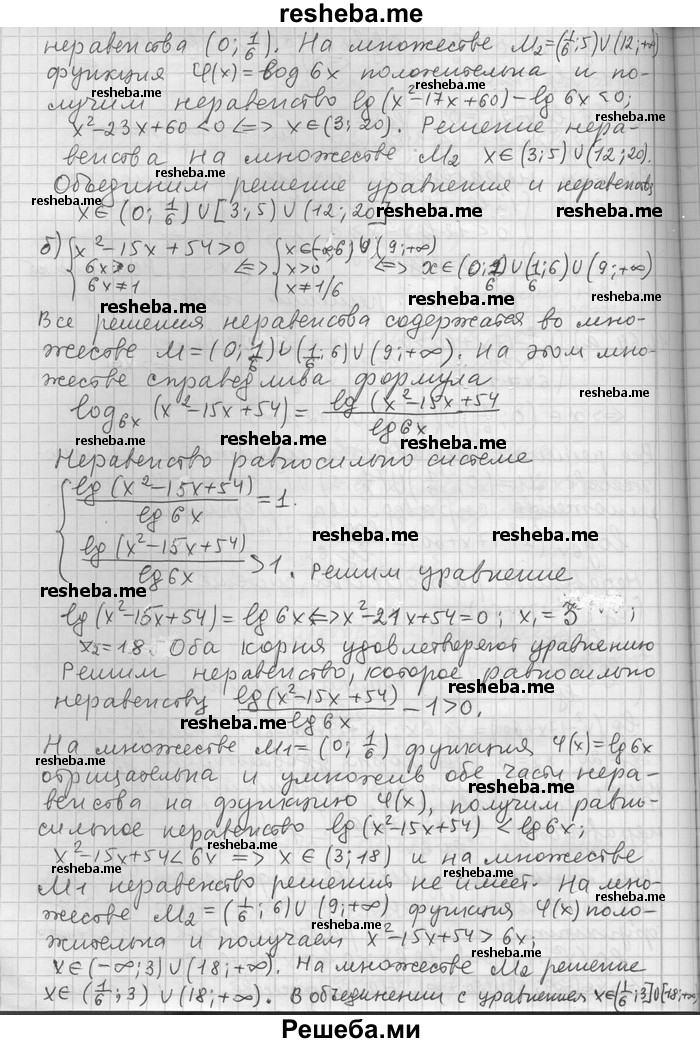 resheba.me
неравенства (0; 1/6). На множестве M₂=(1/6;5)∪(12;+∞)
функция φ(x)=log 6x положительна и по-
лучим неравенство lg(x²-17x+60)-lg 6x<0;
x²-23x+60<0 <=> x∈(3;20). Решение нера-
венства на множестве M₂ x∈(3;5)∪(12;20).
Объединим решение уравнения и неравенств
x∈(0; 1/6)∪[3;5)∪(12;20]
б) {x²-15x+54>0 {x∈(-∞;6)∪(9;+∞)
6x>0 <=> x>0 <=> x∈(0;1/6)∪(1/6;6)∪(9;+∞)
6x≠1 x≠1/6
resheba.me
Все решения неравенства содержатся во мно-
жестве M=(0; 1/6)∪(1/6;6)∪(9;+∞). На этом мно-
жестве справедлива формула
log₆ₓ(x²-15x+54)= lg(x²-15x+54 / lg 6x
Неравенство равносильно системе
{lg(x²-15x+54) / lg 6x =1.
lg(x²-15x+54) / lg 6x >1. Решим уравнение
lg(x²-15x+54)=lg 6x<=>x²-21x+54=0; x₁=3;
x₂=18. Оба корня удовлетворяют уравнению
Решим неравенство, которое равносильно
неравенству lg(x²-15x+54) / lg 6x -1>0.
На множестве M₁=(0; 1/6) функция φ(x)=lg 6x
отрицательна и умножив обе части нера-
венства на функцию φ(x), получим равно-
сильное неравенство lg(x²-15x+54)<lg 6x;
x²-15x+54<6x => x∈(3;18) и на множестве
M₁ неравенство решений не имеет. На мно-
жестве M₂=(1/6;6)∪(9;+∞) функция φ(x) поло-
жительна и получаем x²-15x+54>6x;
x∈(-∞;3)∪(18;+∞). На множестве M₂ решение
x∈(1/6;3)∪(18;+∞). В объединении с уравнением x∈(1/6;3]∪[18;+∞)
Решеба.ми